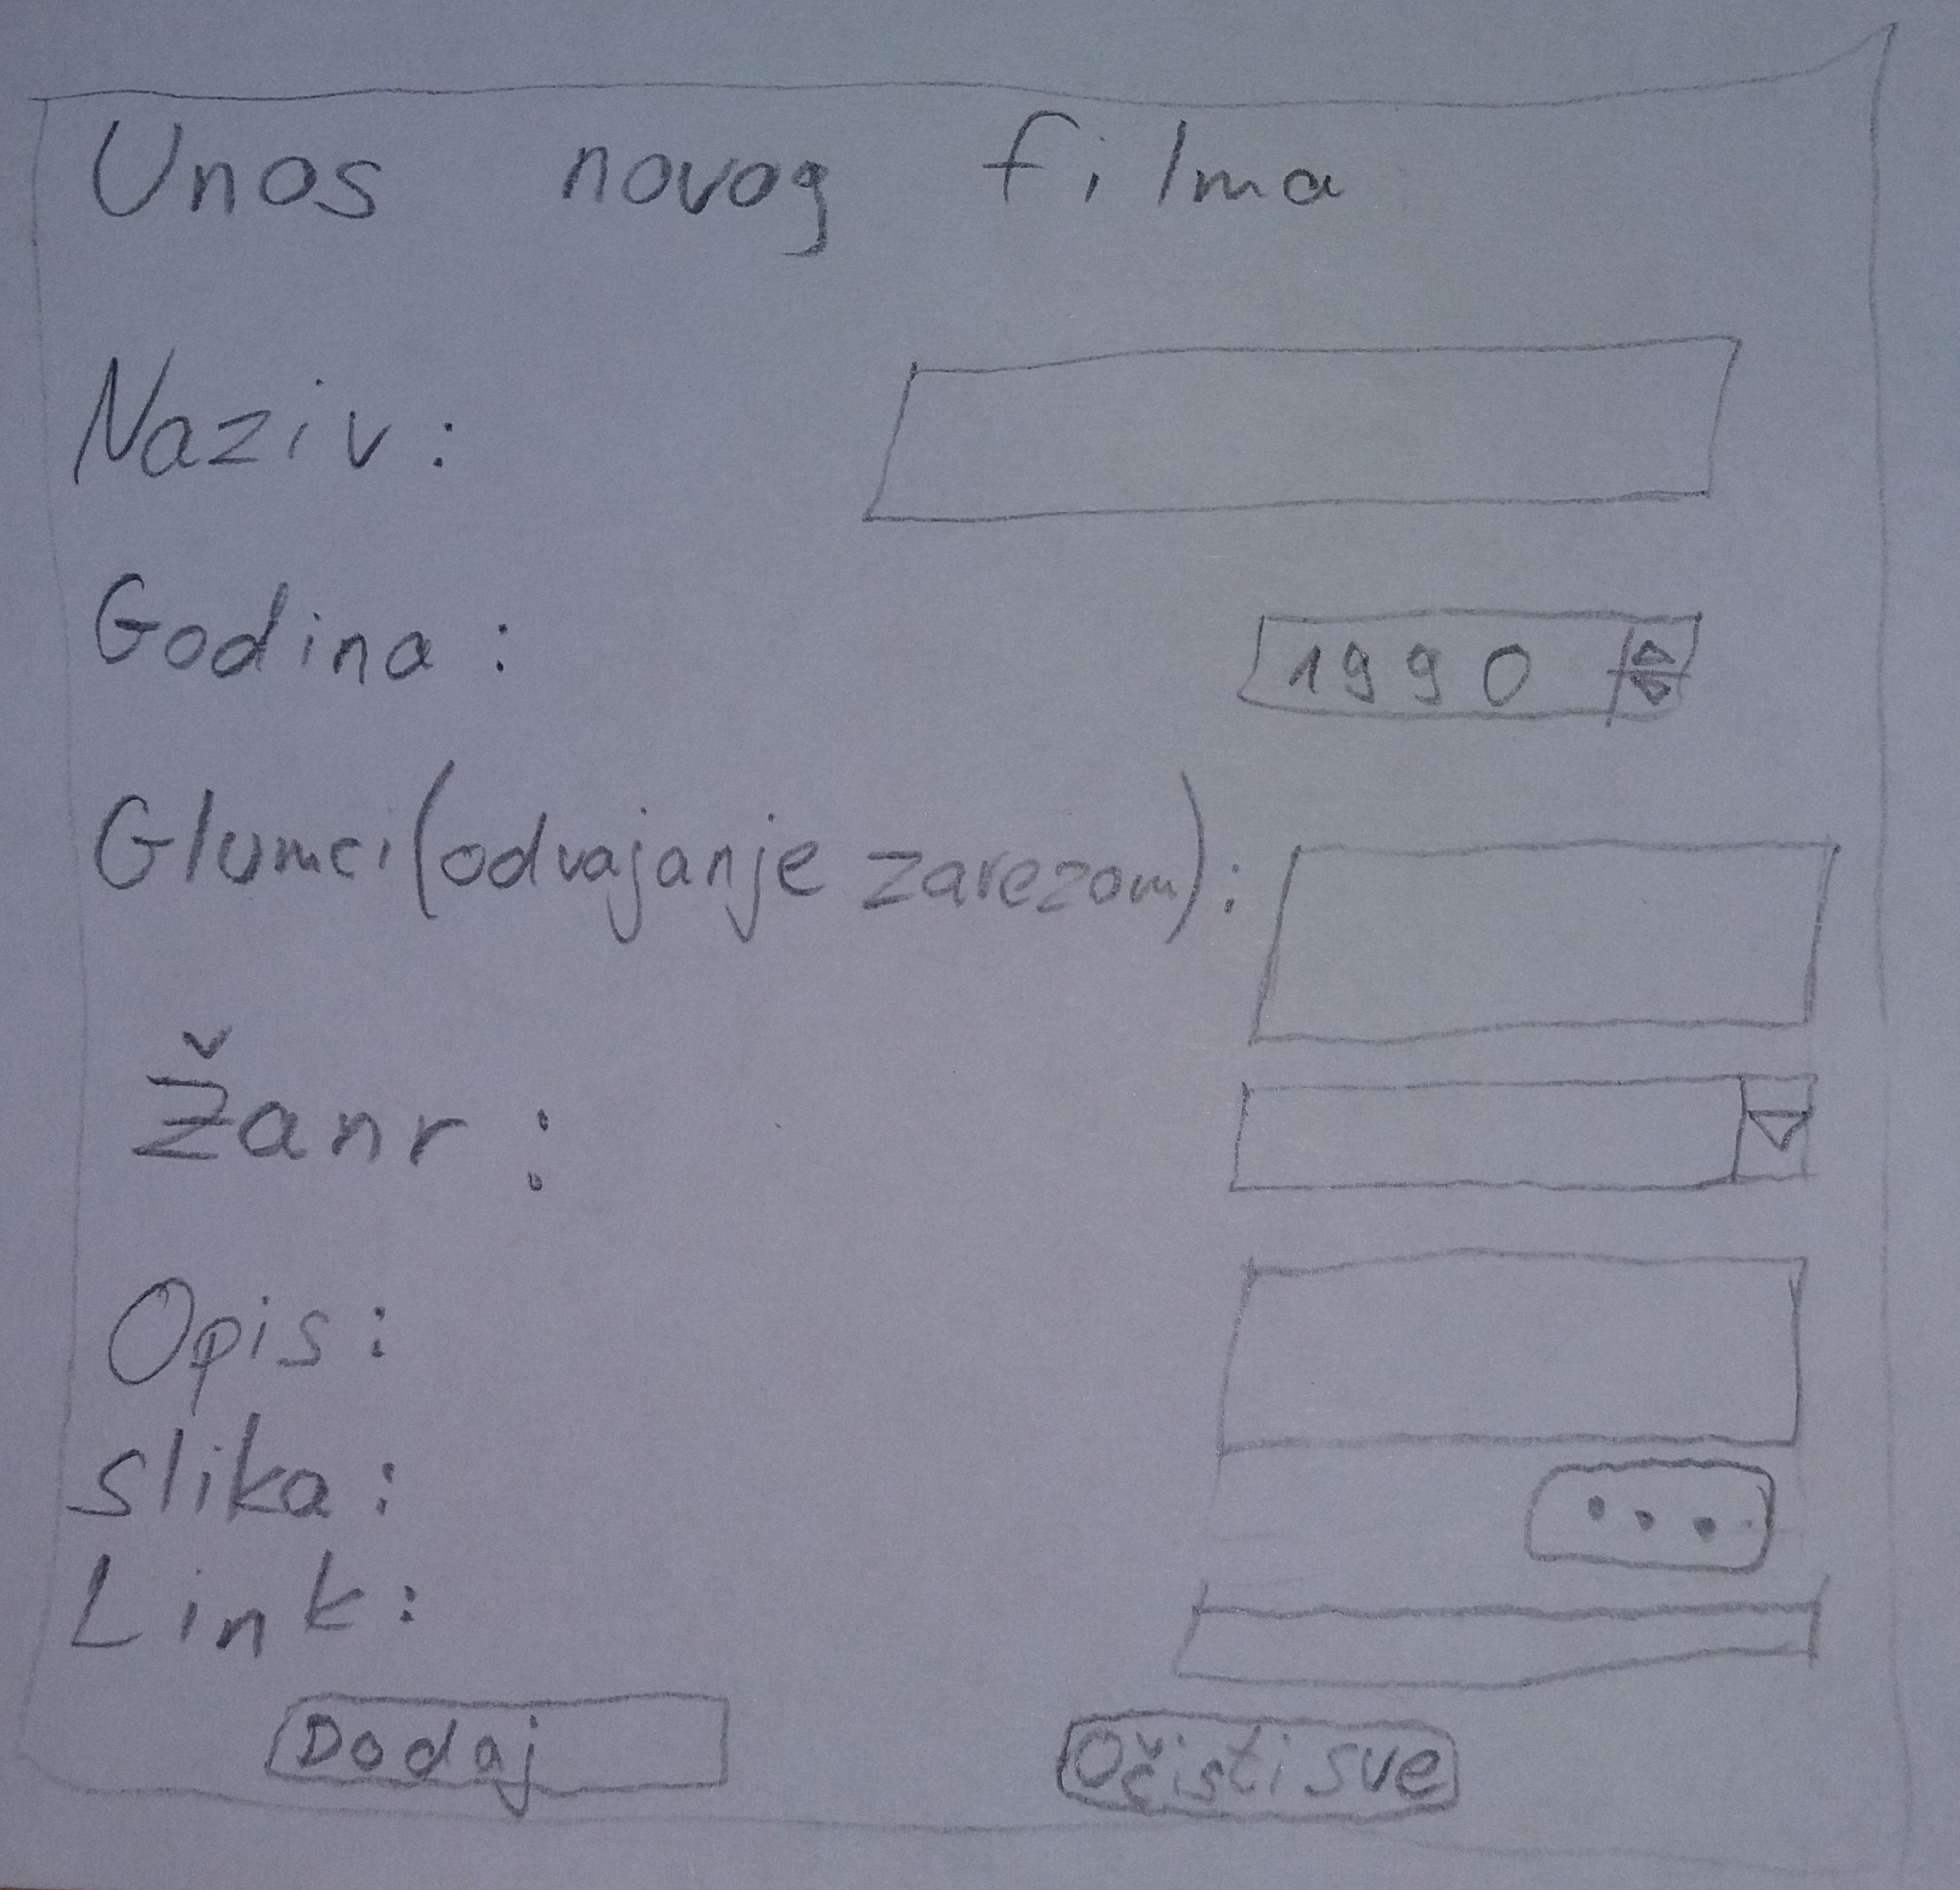 Unos novog filma
Naziv:
Godina: 1990
Glumci(odvajanje zarezom):
Žanr:
Opis:
slika: ...
Link:
Dodaj Očisti sve